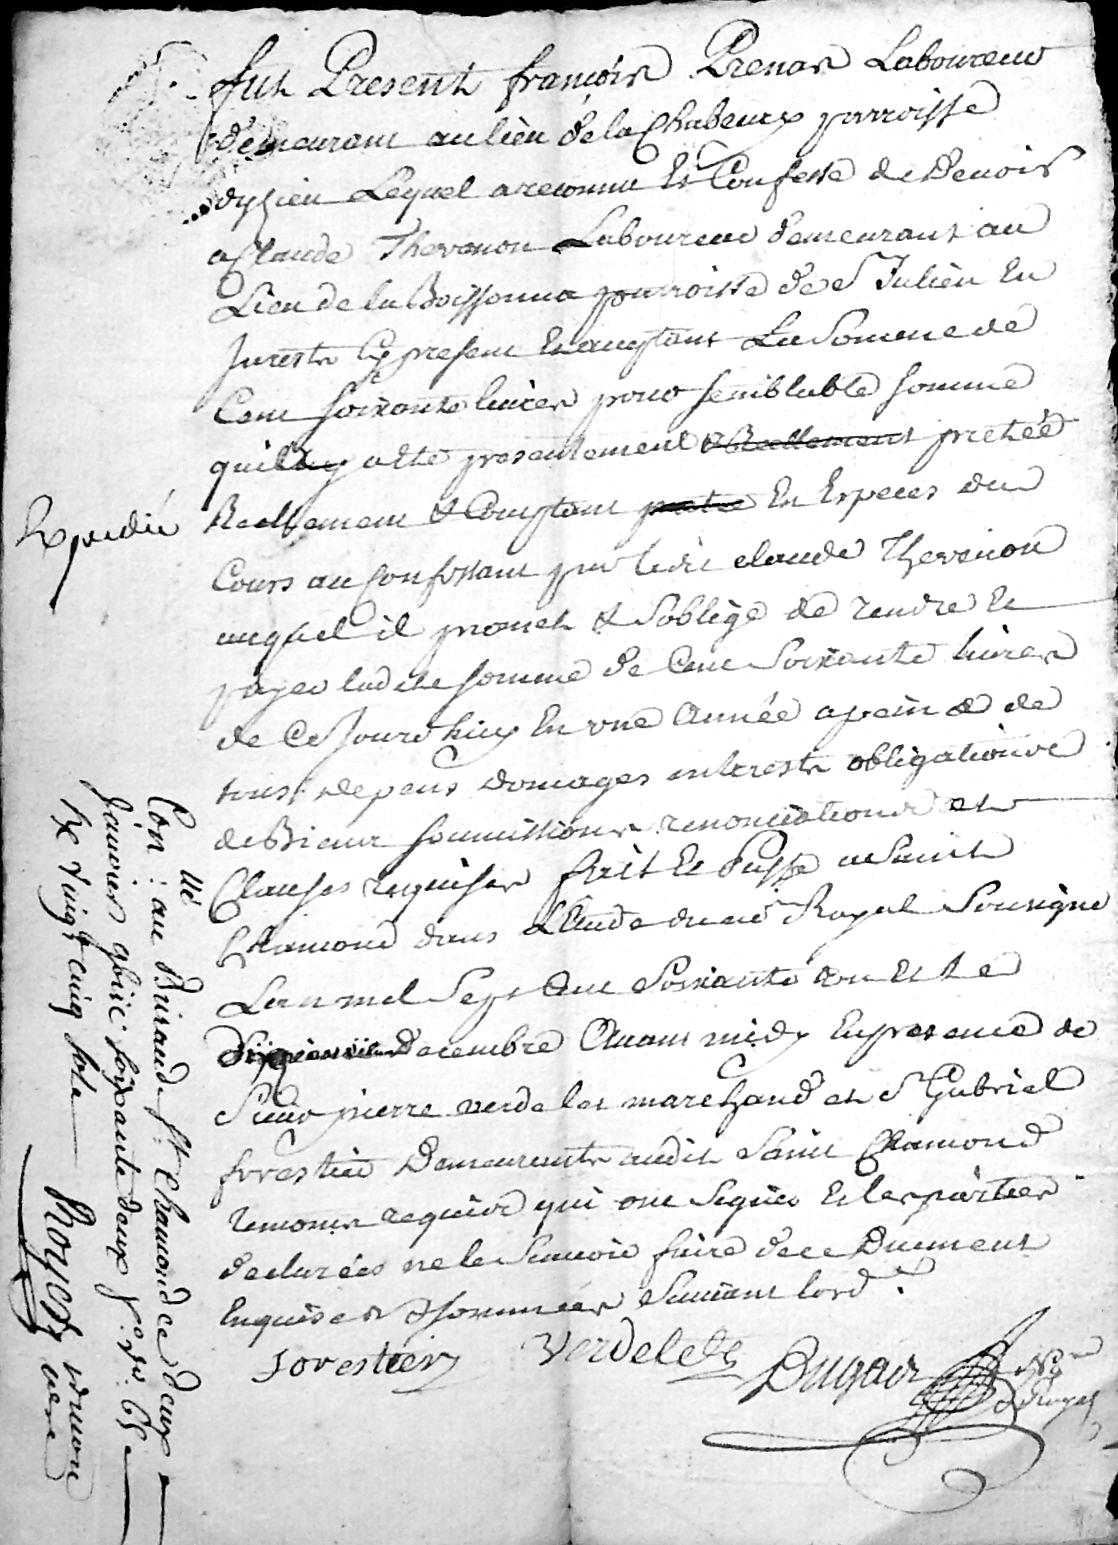 fut Present françois Prenas Laboureur
demeurant au lieu de la Chabeury parroisse
dyzieu Lequel a reconnu Et Confesse de Devoir
a Claude Thevenon Laboureur demeurant au
Lieu de la Boissonna parroisse de St Julien En
Jurests Cy present Et acceptant La Somme de
Cent soixante livres pour semblable somme
quil luy a ete presentement & Reellement pretée
Reellement & Comptant En Especes du
Cours au Confessant par ledit claude Thevenon
auquel il promet & Soblige de rendre Et
payer ladite somme de Cent Soixante livres
de Ce Jourdhuy En une Année a peine de
tous depens domages interests obligation de
de Bieux soumissions renonciations et
Clauses requises fait Et Passé a Saint
Chamond dans L'Etude du nore Royal Sousigné
L'an mil Sept Cent Soixante un Et Le
Decembre Avant midy En presence de
Sieur pierre verdelet marchand et Sr Gabriel
forestier Demeurants audit Saint Chamond
temoins requis qui ont Signés Et les parties
declarées ne le Scavoir faire de ce Duement
Enquises & sommées Suivant lord.
Forestier Verdelet Dugair Nre Royal
Expedié
Con: llé au Bureau de St Chamond ce deux
Janvier gbiic soixante deux fo. vo. 65
Rx vingt cinq sols Royer